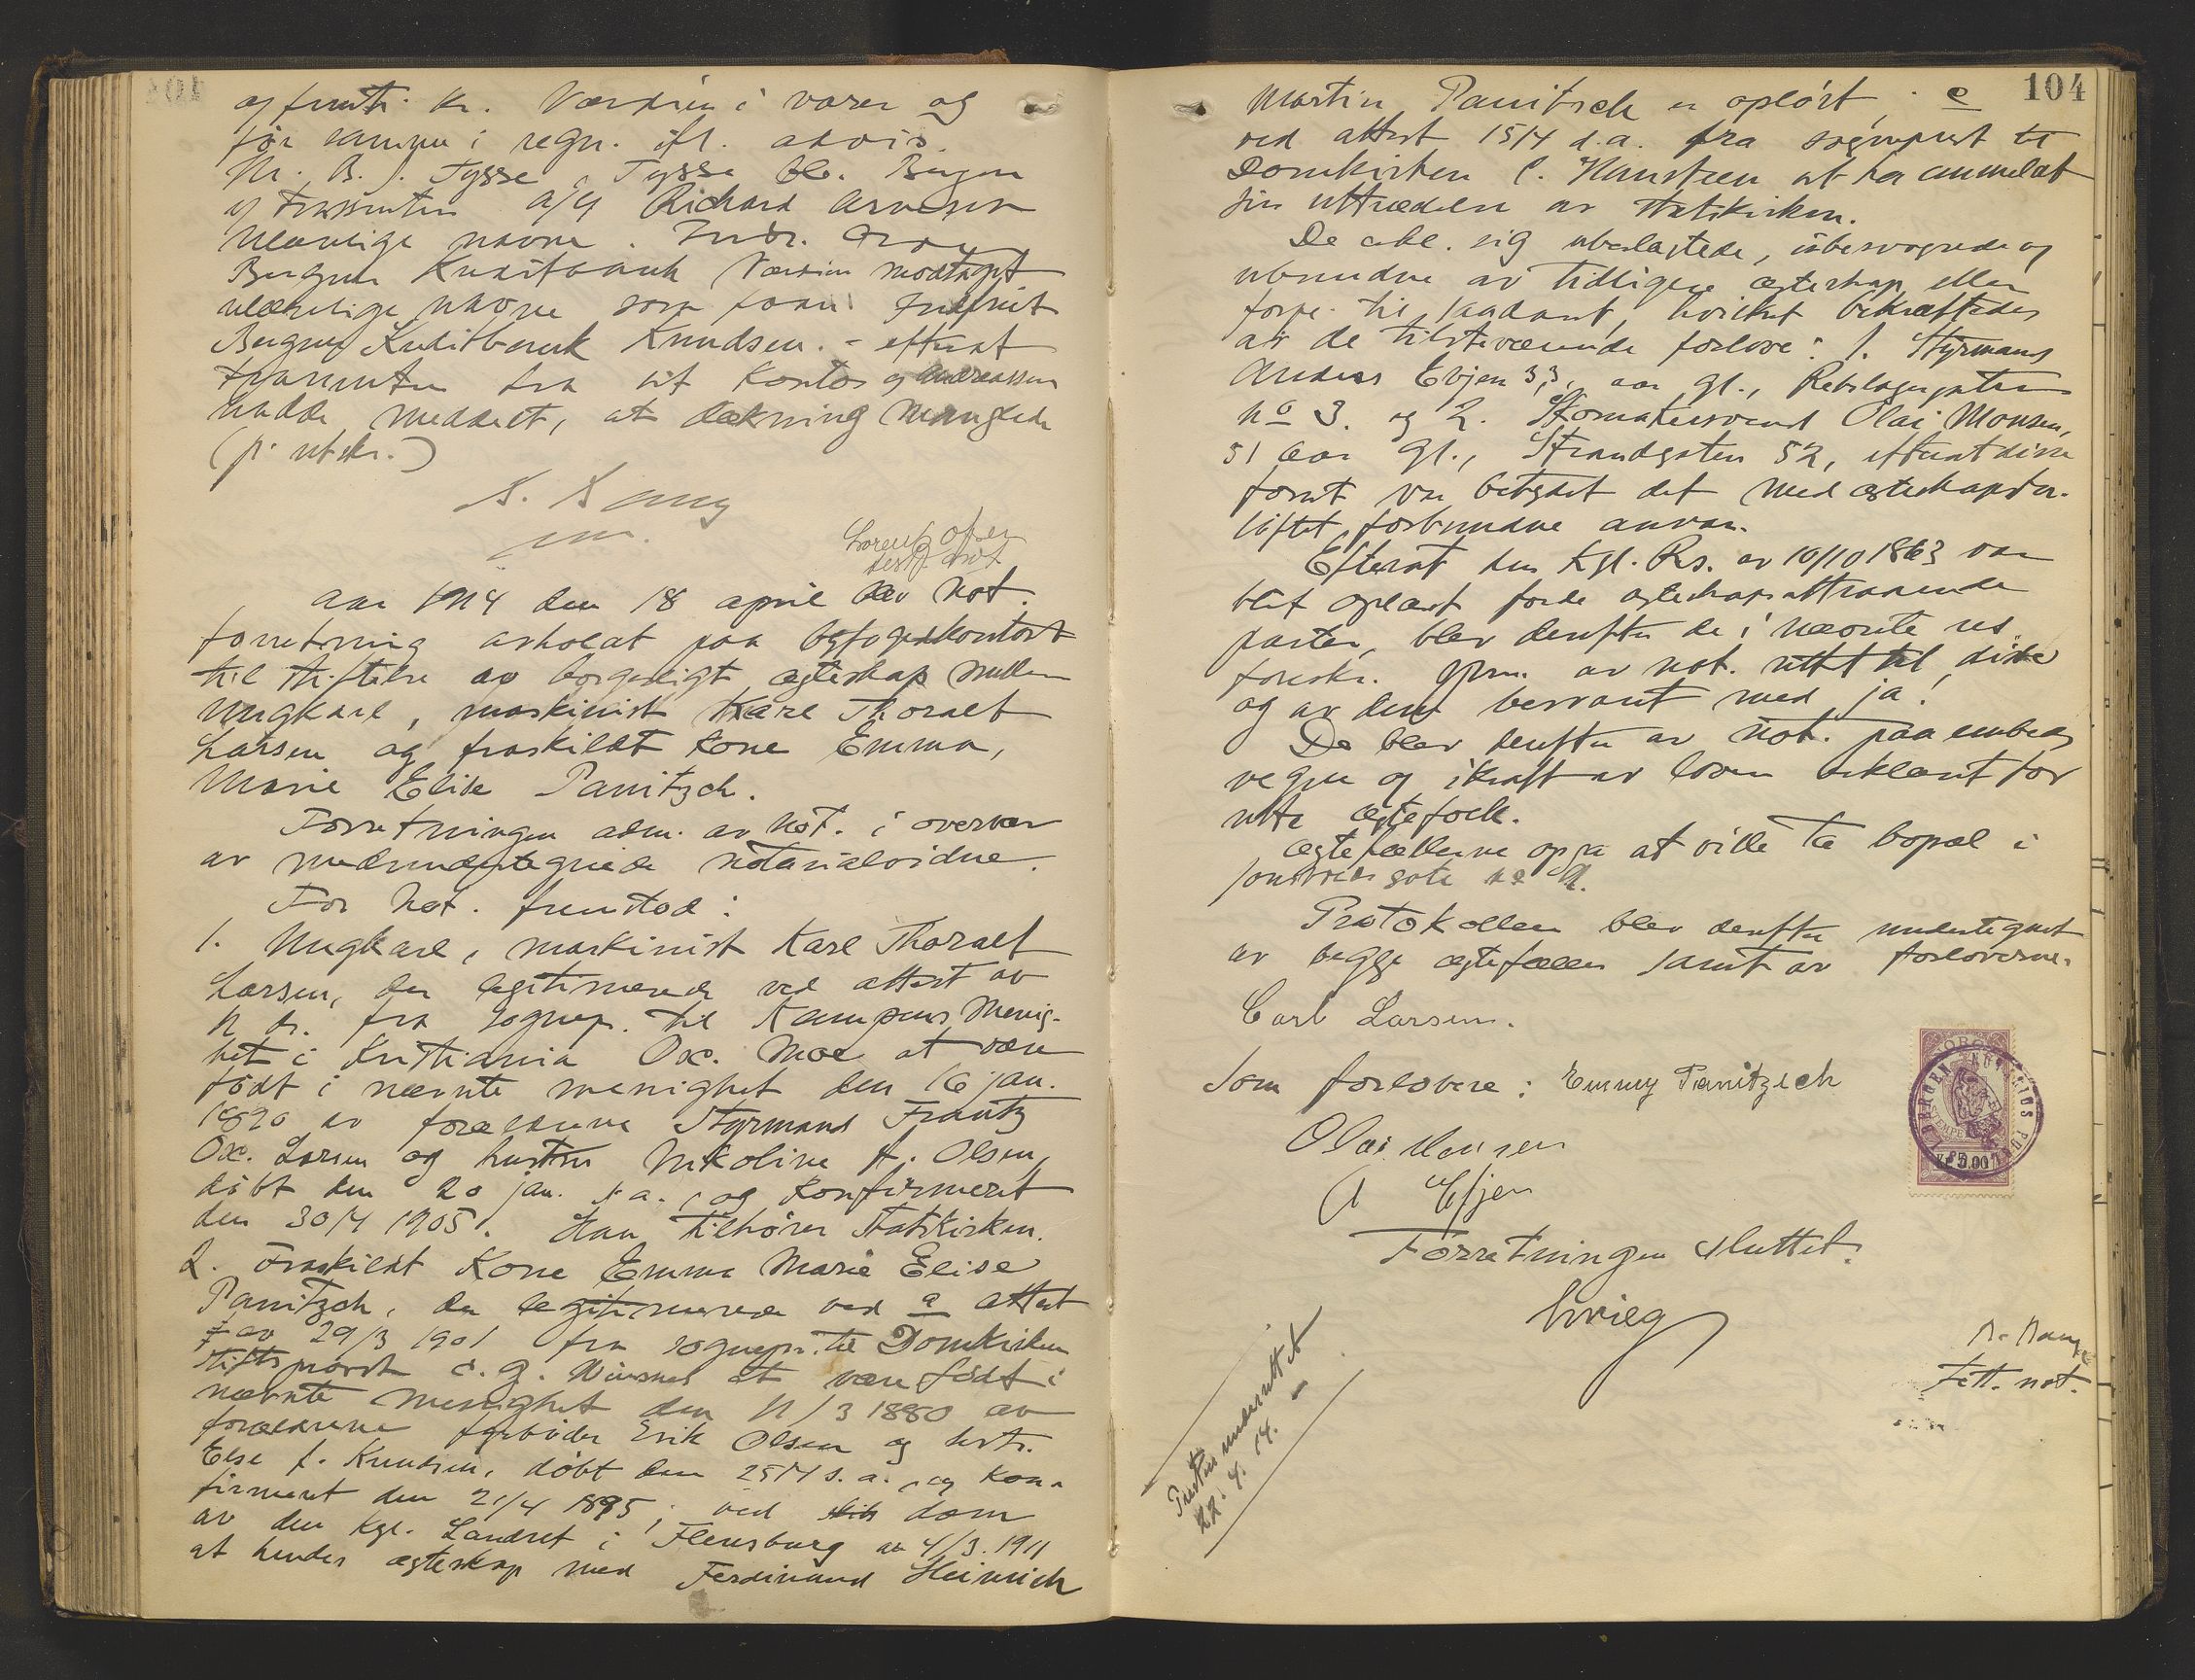 og femti kr. Værdien i varer og
før samme i regn. ifl. advis.
Hr. B. J. Tysse, Tysse bl. Bergen
og trassenten A/S Richard Andersen
ulæselige navne.
Bergens Kreditbank Værdien modtagt
ulæselige navne som
Bergens Kreditbank Knudsen. - efterat
trassenten fra sit kontor og
hadde meddelt, at dækning manglede
(p. utskr.)
aar 1914 den 18 april blev not.
forretning avholdt paa byfogedkontoret
til stiftelse av borgerligt egteskap mellem
Ungkarl, maskinist Karl Thoralf
Larsen og fraskildt kone Emma,
Marie Elise Panitzch.
Forretningen adm. av not. i overvær
av medundertegnede notarialvidne.
For Not. fremstod:
1. Ungkarl, maskinist Karl Thoralf
Larsen, der legitimerede ved attest av
ds. fra sognepr. til Kampens Menig-
het i Kristiania Ox. Moe at være
født i nævnte menighet den 16 jan.
1890 av forældrene Styrmand Frantz
Ox. Larsen og hustru Nikoline f. Olsen,
døbt den 20 jan. s.a., og konfirmeret
den 30/4 1905. Han tilhører Statskirken.
2. Fraskildt Kone Emma Marie Elise
Panitzch, der legitimerede ved a attest
av 29/3 1901 fra sognepr. til Domkirken
Stiftsprovst at være født i
nævnte menighet den 11/3 1880 av
forældrene fyrbøder Erik Olsen og hustr.
Else f. Knudsen, døbt den 25/4 s.a., og kon-
firmeret den 21/4 1895; ved dom
av den Kgl. Landret i Flensburg av 4/3. 1911
at hendes egteskap med Ferdinand Heinrich
104
Martin Panitzch er opløst, c
ved attest 15/4 d.a. fra sogneprest til
Domkirken C. Hansteen at ha anmeldt
sin uttrædelse av statskirken.
De erkl. sig ubeslægtede, ubesvogrede og
ubundne av tidligere egteskap eller
forpl. til saadant, hvilket bekræftedes
av de tilstedeværende forlovere: 1. Styrmand
Anders Evjen 33 aar gl., Rebslagergaten
No 3. og 2. Skomakersvend Olai Monsen,
51 aar gl., Strandgaten 52, efterat disse
forut var betydet det med egteskapsfor-
løftet forbundne ansvar.
Efterat den Kgl. Rs. av 10/10 1863 var
blit oplæst for de egteskapsattraaende
parter, blev derefter de i nævnte res.
foreskr. spm. av not. rettet til disse
og av dem besvart med ja!
De blev derefter av not. paa embeds
vegne og i kraft av loven erklært for
rette egtefolk.
Egtefællerne opga at ville ta bopæl i
Protokollen blev derefter undertegnet
av begge egtefæller samt av forloverne.
Carl Larsen.
Som forlovere: Emmy Panitzsch
Olai Monsen
A Evjen
Forretningen sluttet.
Grieg
fett. not.
Presten underrettet
22. 4. 14.